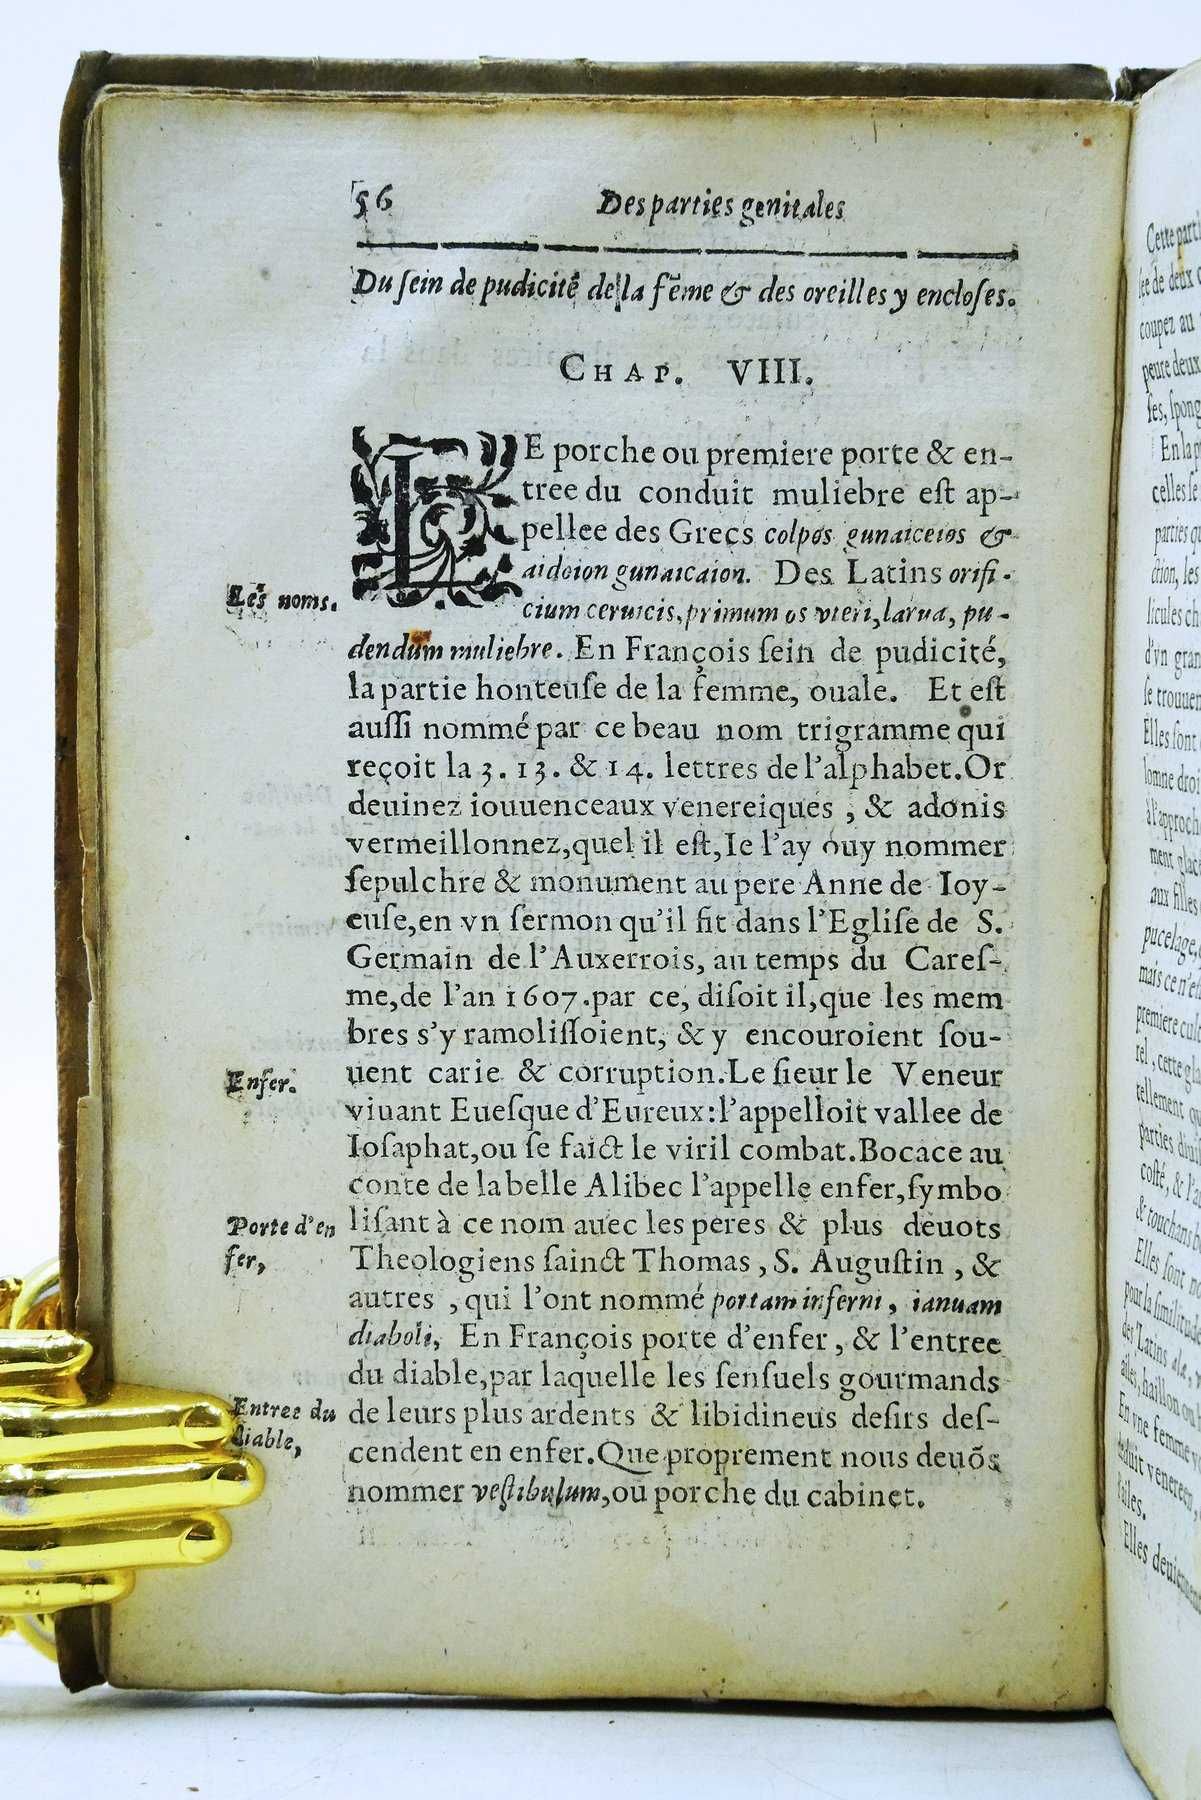 56 Des parties genitales
Du sein de pudicité de la fẽme & des oreilles y encloses.
CHAP. VIII.
LE porche ou premiere porte & en-
tree du conduit muliebre est ap-
pellee des Grecs colpos gunaiceios &
aidoion gunaicaion. Des Latins orifi-
Les noms.
cium ceruicis, primum os vteri, larua, pu-
dendum muliebre. En François sein de pudicité,
la partie honteuse de la femme, ouale. Et est
aussi nommé par ce beau nom trigramme qui
reçoit la 3. 13. & 14. lettres de l'alphabet. Or
deuinez iouuenceaux venereiques, & adonis
vermeillonnez, quel il est, Ie l'ay ouy nommer
sepulchre & monument au pere Anne de Ioy-
euse, en vn sermon qu'il fit dans l'Eglise de S.
Germain de l'Auxerrois, au temps du Cares-
me, de l'an 1607. par ce, disoit il, que les mem
bres s'y ramolissoient, & y encouroient sou-
Enfer.
uent carie & corruption. Le sieur le Veneur
viuant Euesque d'Eureux: l'appelloit vallee de
Iosaphat, ou se faict le viril combat. Bocace au
conte de la belle Alibec l'appelle enfer, symbo
Porte d'en
fer,
lisant à ce nom auec les peres & plus deuots
Theologiens sainct Thomas, S. Augustin, &
autres, qui l'ont nommé portam inferni, ianuam
diaboli, En François porte d'enfer, & l'entree
du diable, par laquelle les sensuels gourmands
Entree du
diable,
de leurs plus ardents & libidineus desirs des-
cendent en enfer. Que proprement nous deuõs
nommer vestibulum, ou porche du cabinet.
Cette parti
see de deux
coupez au
peure deux
ses, spong
En la p
celles se
parties qu
ction, les
licules ch
d'vn gran
se trouuen
Elles sont
lomne droi
à l'approche
ment glac
aux filles
pucelage,
mais ce n'est
premiere cui
rel, cette gla
tellement que
parties diuis
costé, & l'a
& touchans
Elles sont
pour la similitude
des Latins alæ,
ailes, haillon ou
En vne femme
duit venereen,
failes.
Elles deuiennent